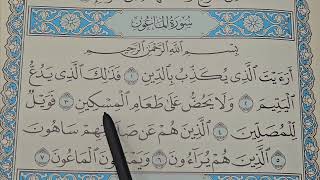 سورة الماعون
بسم الله الرحمن الرحيم
أرءيت الذى يكذب بالدين ١ فذلك الذى يدع
اليتيم ٢ ولا يحض على طعام المسكين ٣ فويل
للمصلين ٤ الذين هم عن صلاتهم ساهون
٥ الذين هم يراءون ٦ ويمنعون الماعون ٧